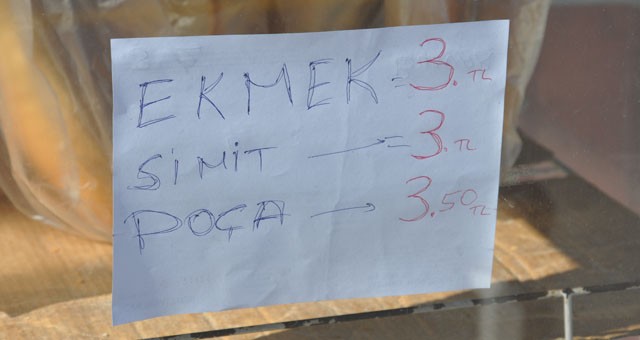 EKMEK = 3. TL
SİMİT → = 3. TL
POÇA → 3.50 TL